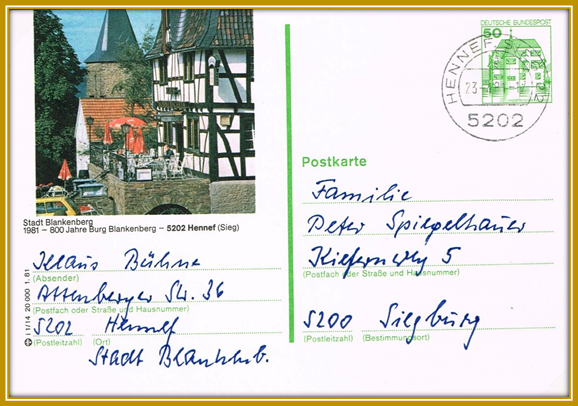 Stadt Blankenberg
1981 – 800 Jahre Burg Blankenberg – 5202 Hennef (Sieg)
Klaus Bühne
(Absender)
Attenberger Str. 36
(Postfach oder Straße und Hausnummer)
5202 Hennef
(Postleitzahl) (Ort)
Stadt Blankenb.
I 1/14 20 000 1. 81
DEUTSCHE BUNDESPOST
50
HENNEF
23
5202
Postkarte
Familie
Peter Spiegelhauer
Kiefernweg 5
(Postfach oder Straße und Hausnummer)
5200 Siegburg
(Postleitzahl) (Bestimmungsort)